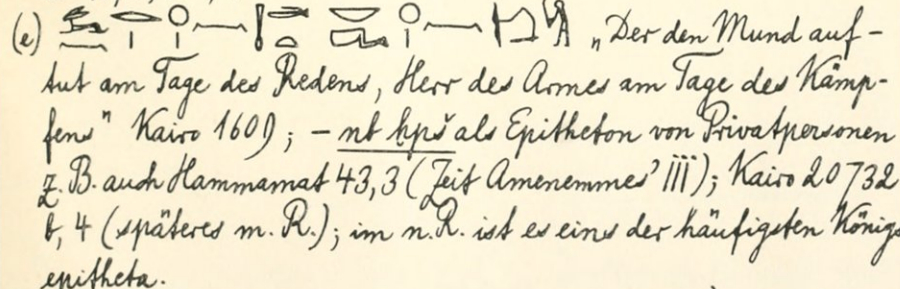 (e) „Der den Mund auf-
tut am Tage des Redens, Herr des Armes am Tage des Kämp-
fens" Kairo 1609; – nb ḫpš als Epitheton von Privatpersonen
z. B. auch Hammamat 43,3 (Zeit Amenemmes' III); Kairo 20732
b, 4 (späteres m. R.); im n. R. ist es eins der häufigsten Königs
epitheta.